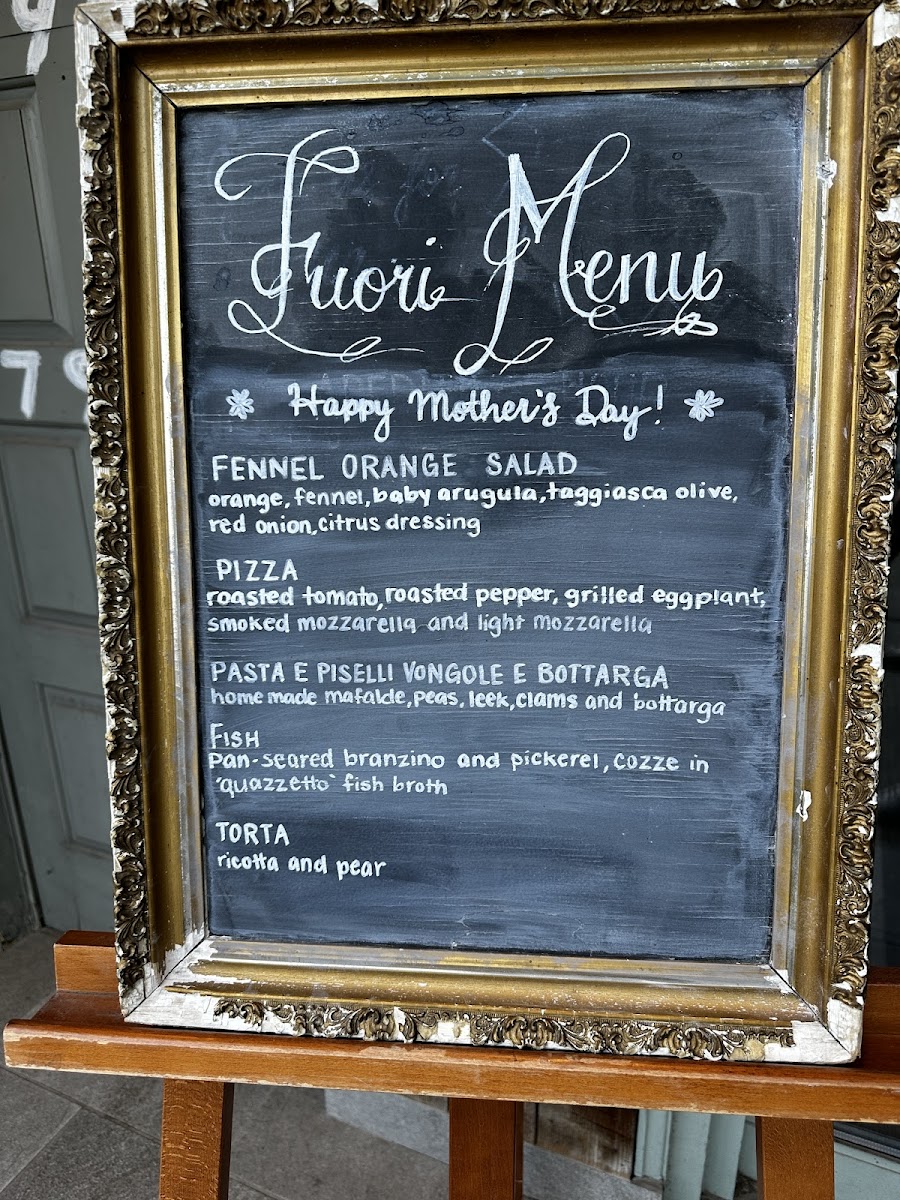 Fuori Menu
Happy Mother's Day!
FENNEL ORANGE SALAD
orange, fennel, baby arugula, taggiasca olive,
red onion, citrus dressing
PIZZA
roasted tomato, roasted pepper, grilled eggplant,
smoked mozzarella and light mozzarella
PASTA E PISELLI VONGOLE E BOTTARGA
home made mafalde, peas, leek, clams and bottarga
FISH
pan-seared branzino and pickerel, cozze in
'quazzetto' fish broth
TORTA
ricotta and pear